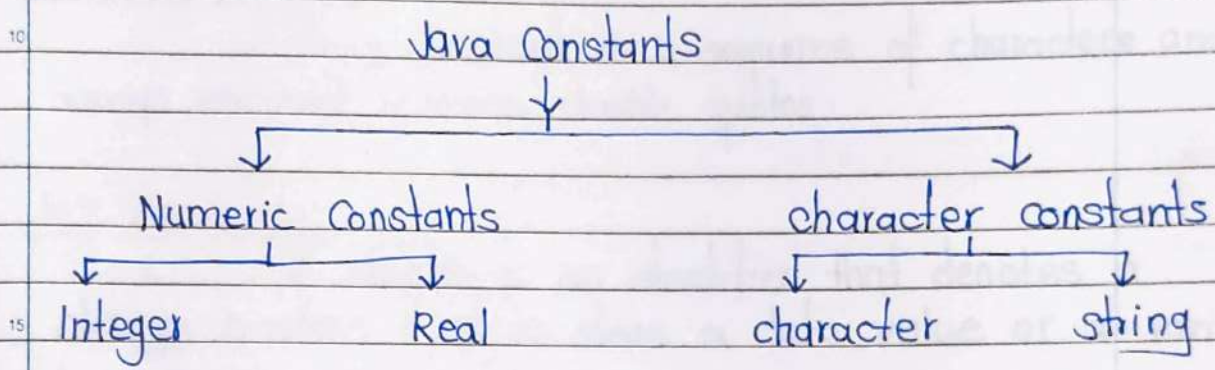 10
Java Constants
Numeric Constants character constants
15 Integer Real character string